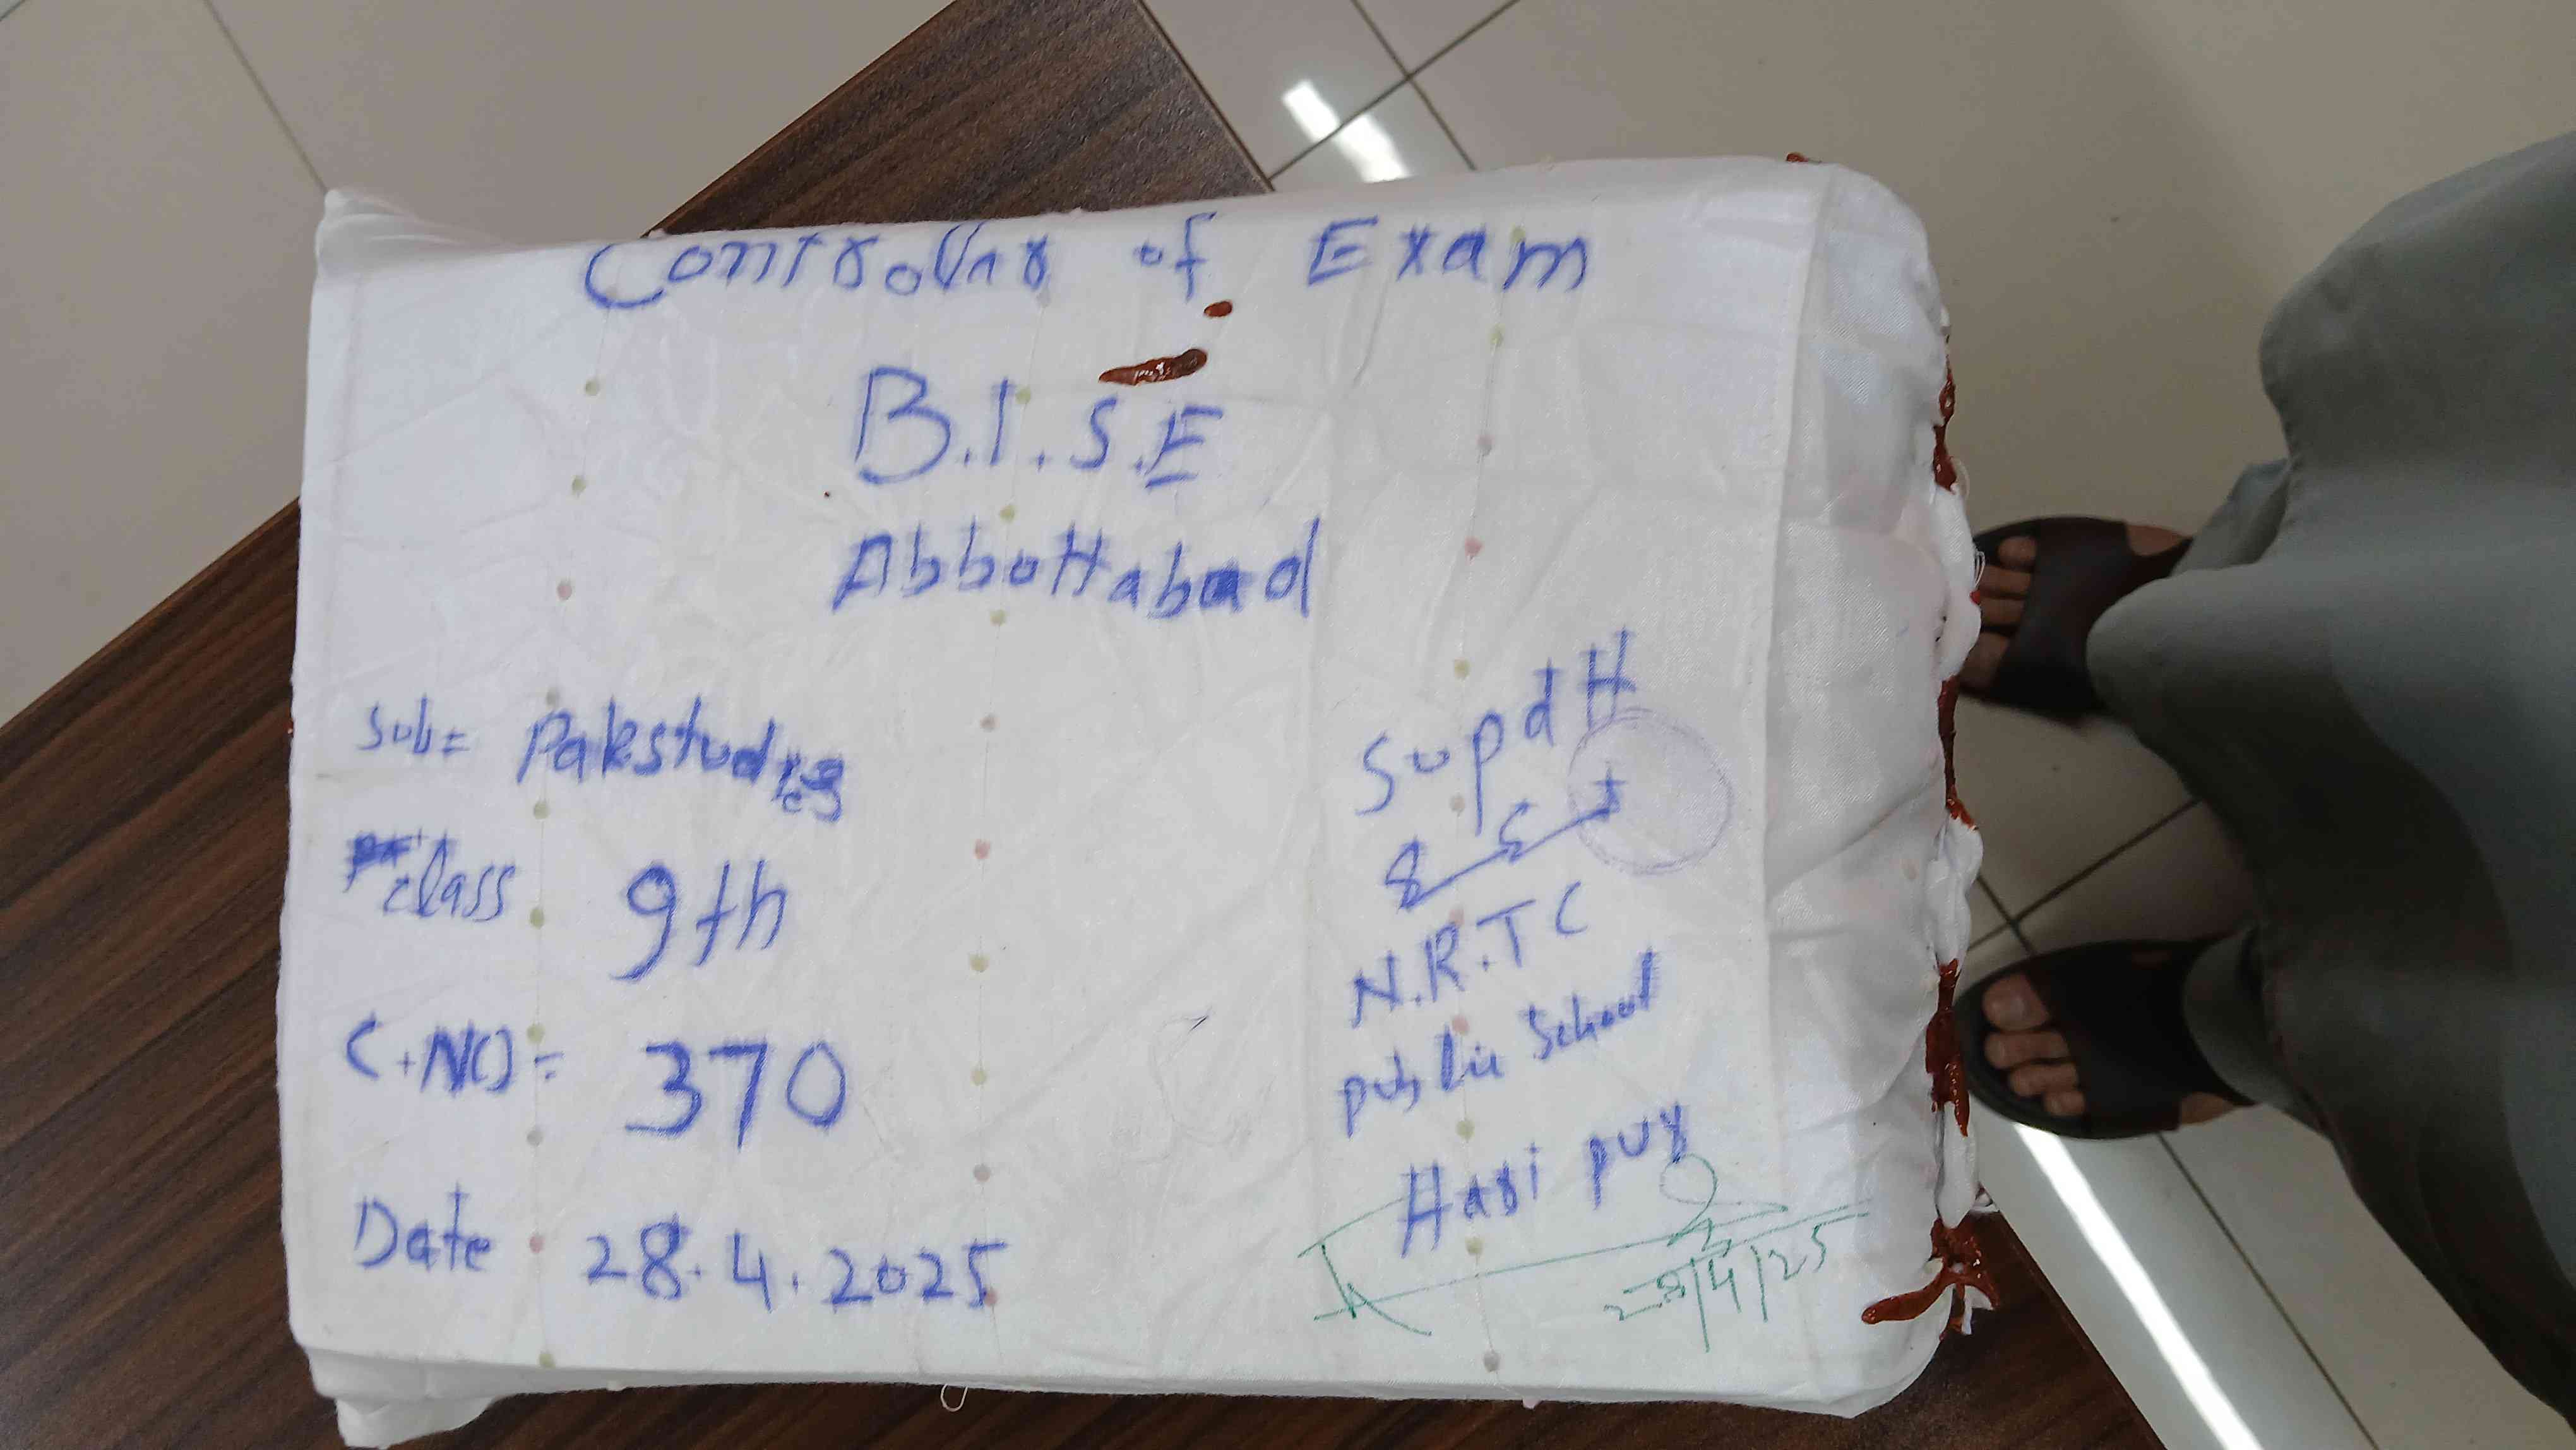 Controller of Exam
B.I.S.E
Abbottabad
Sub= Pakstudies
class 9th
C.NO= 370
Date 28.4.2025
Supdtt
N.R.T C
public School
Hari pur
28/4/25